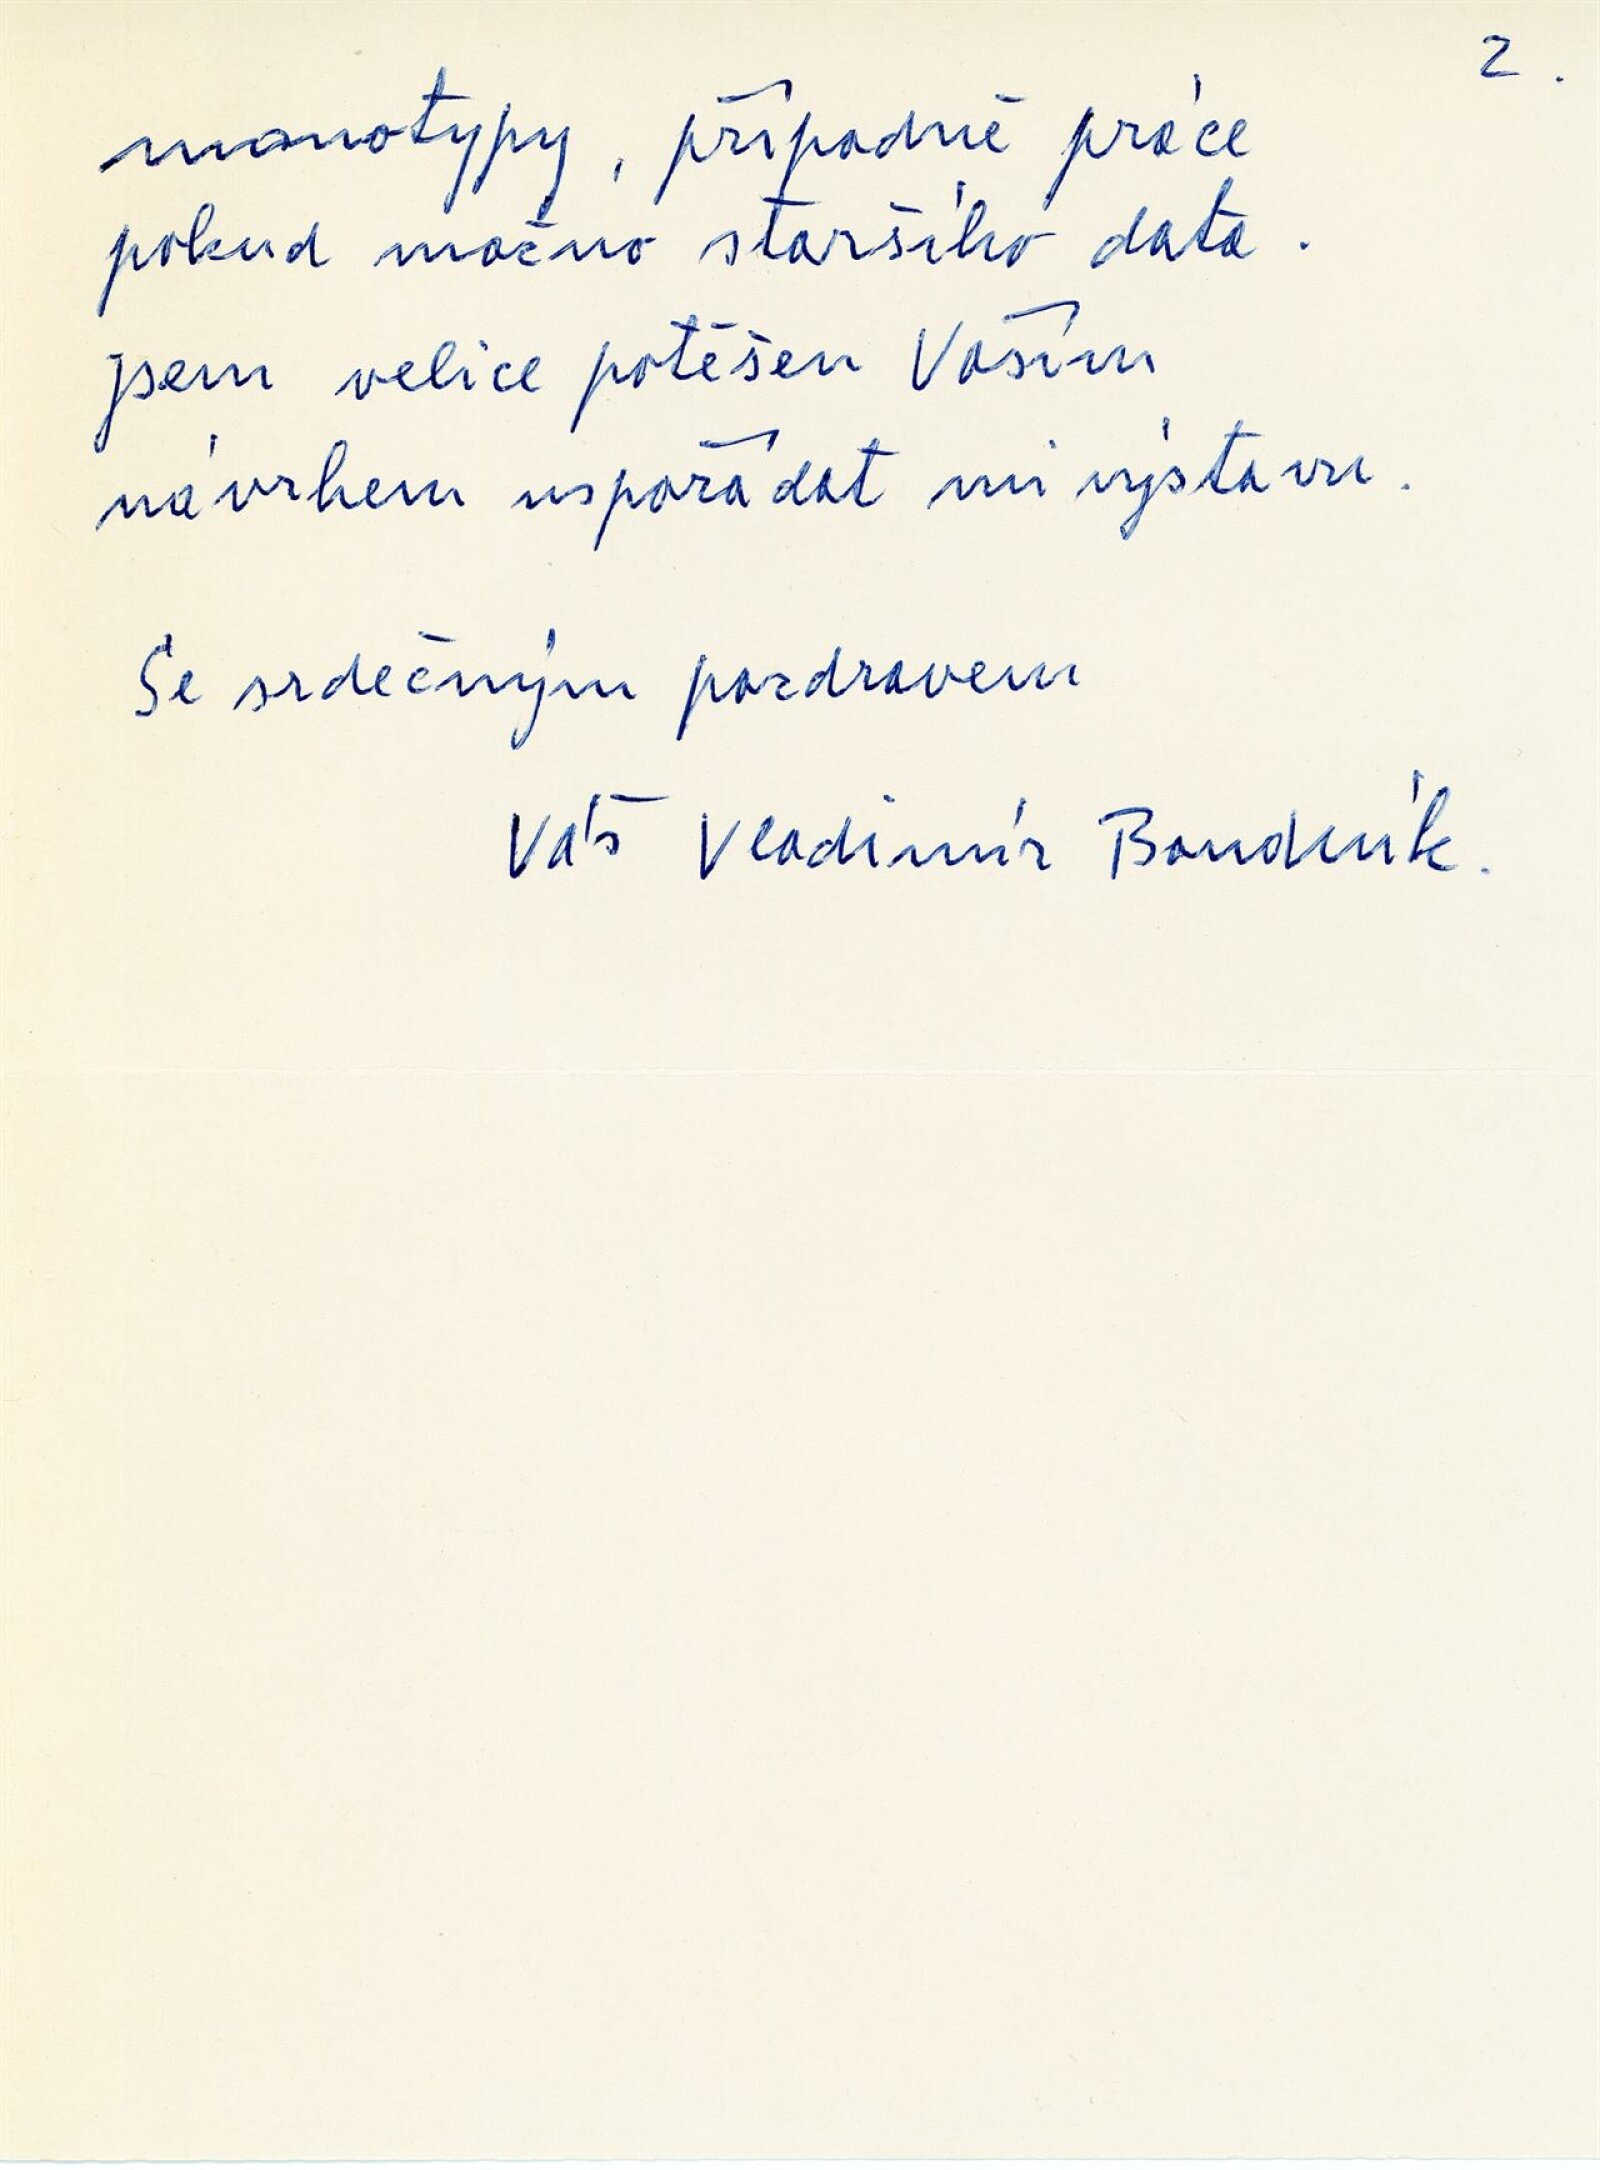 2.
monotypy, případně práce
pokud možno staršího data.
jsem velice potěšen Vaším
návrhem uspořádat mi výstavu.
Se srdečným pozdravem
Váš Vladimír Boudník.